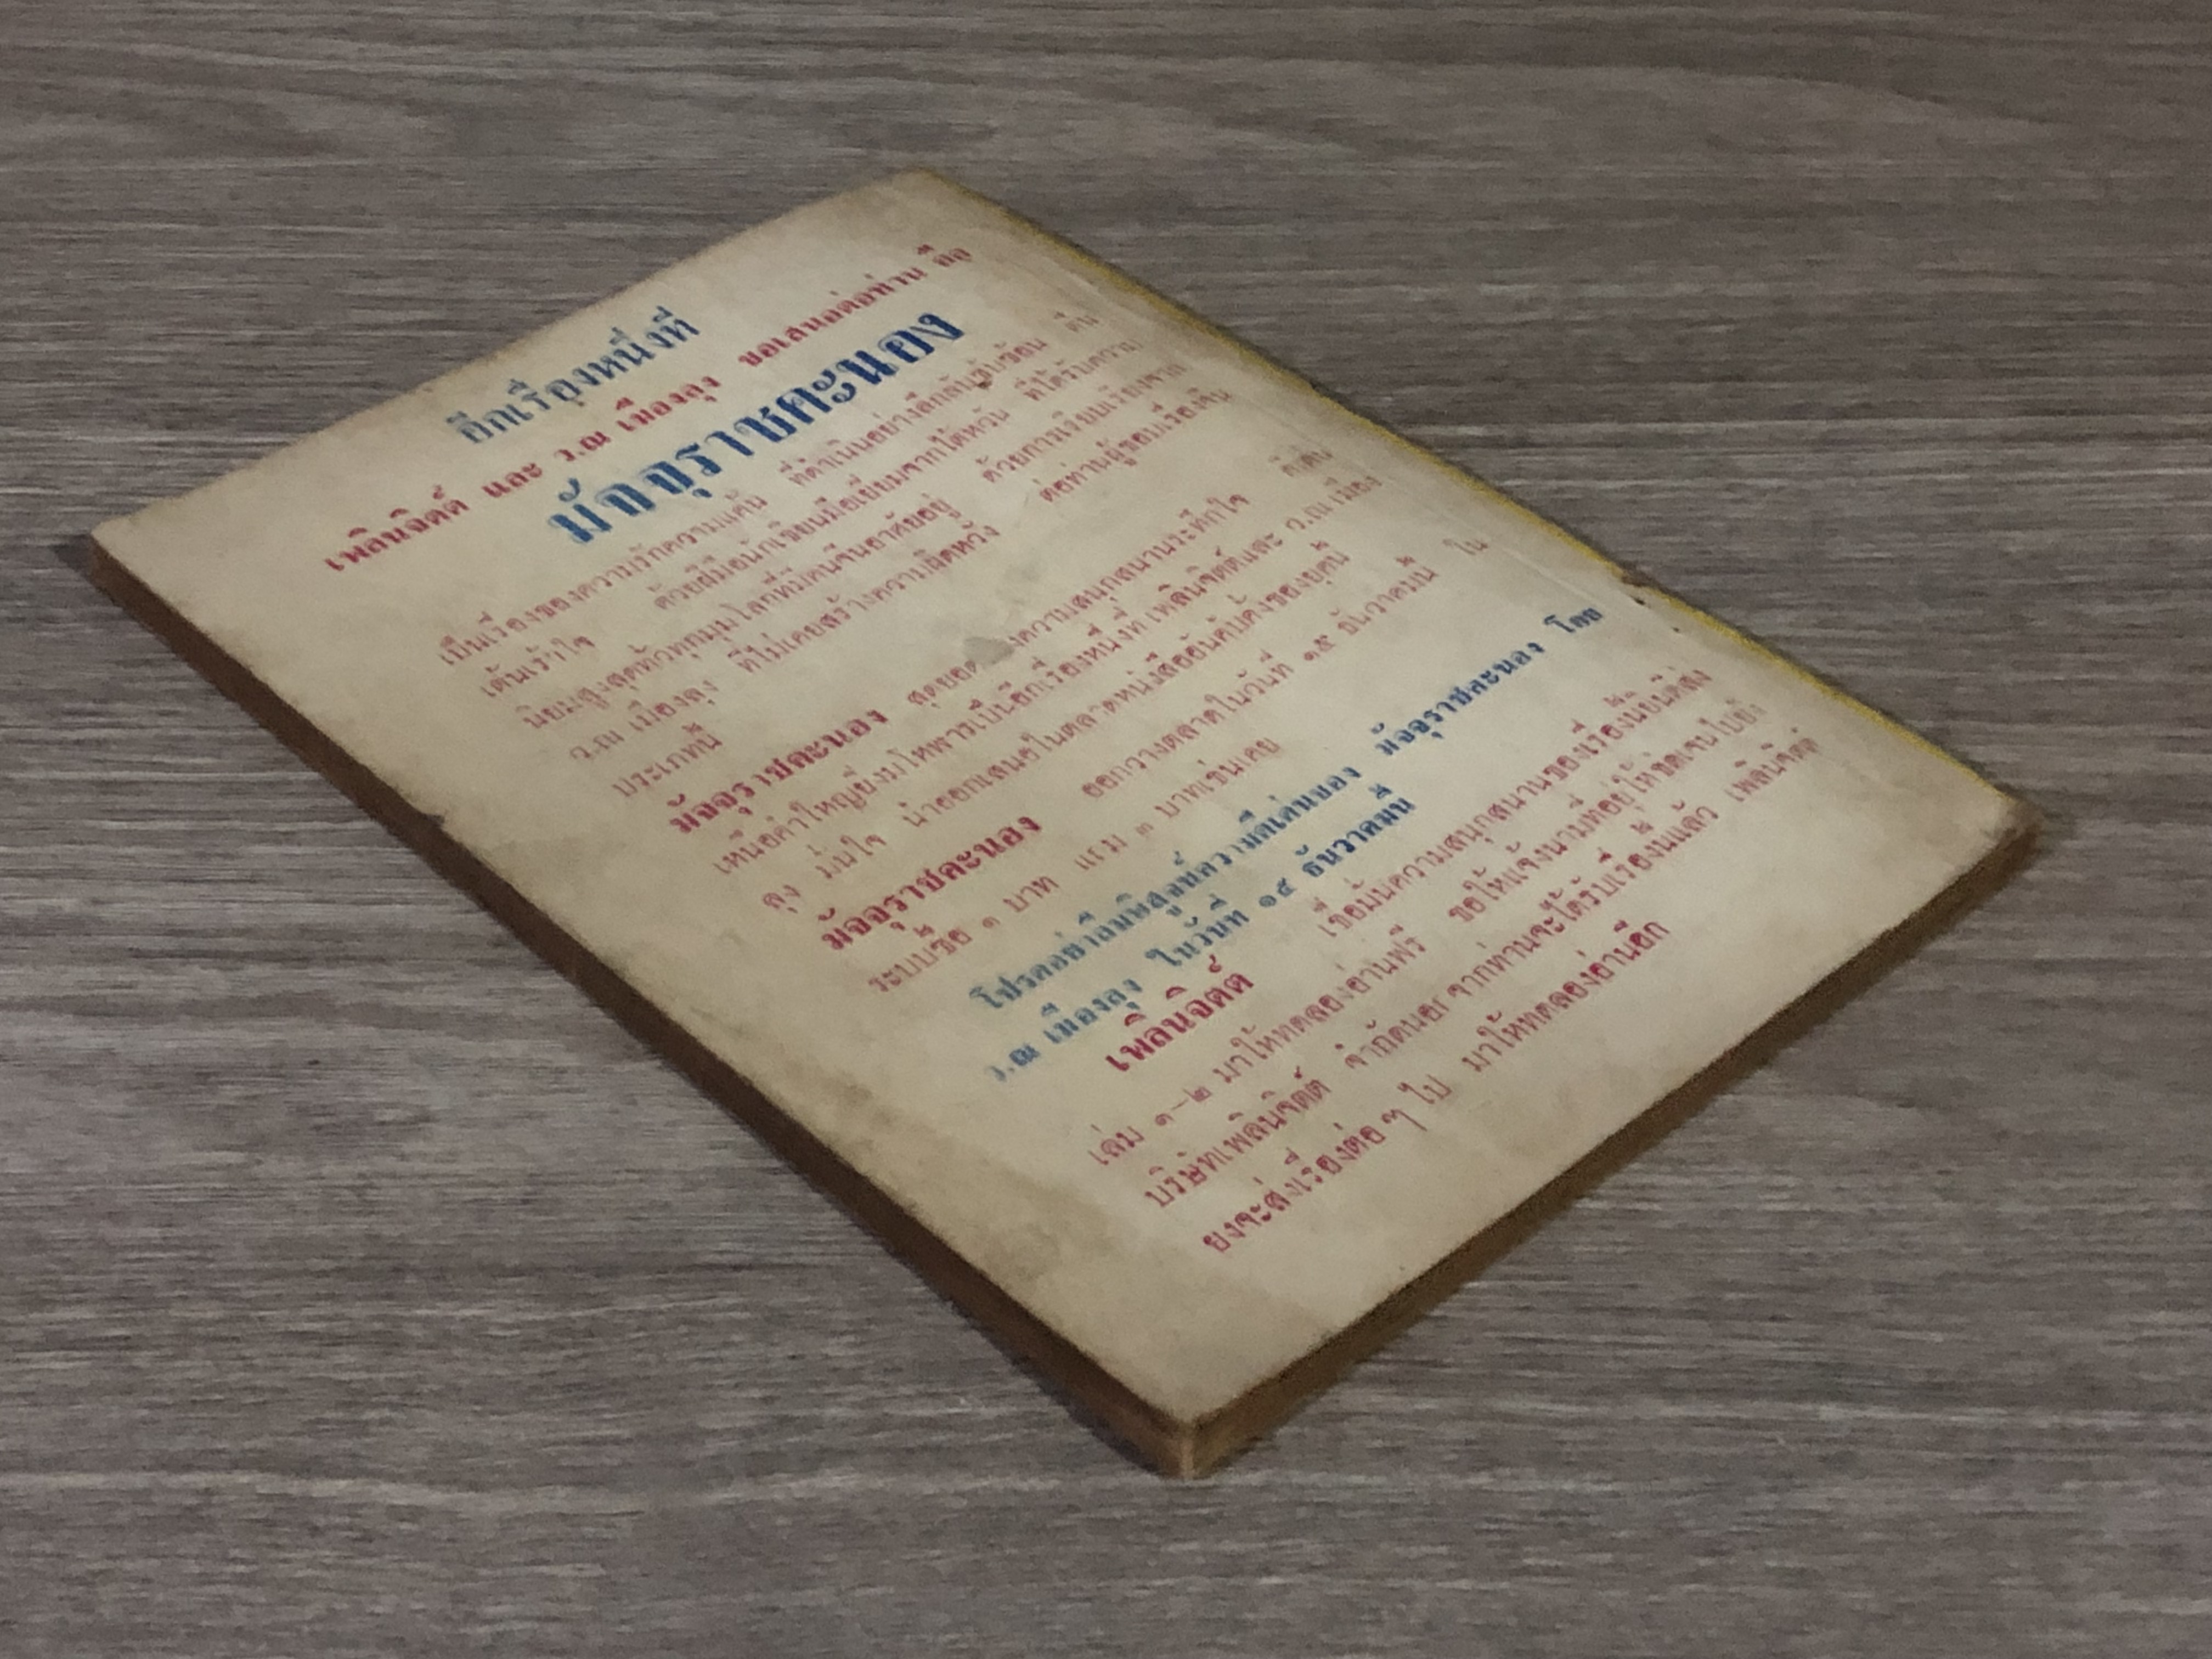 อีกเรื่องหนึ่งที่
เพลินจิตต์ และ ว.ณ เมืองลุง ขอเสนอต่อท่าน คือ
มัจจุราชคะนอง
เป็นเรื่องของความรักความแค้น ที่ดำเนินอย่างลึกลับซับซ้อน ตื่น
เต้นเร้าใจ ด้วยฝีมือนักเขียนมือเยี่ยมจากไต้หวัน ที่ได้รับความ
นิยมสูงสุดทั่วทุกมุมโลกที่มีคนจีนอาศัยอยู่ ด้วยการเรียบเรียงจาก
ว.ณ เมืองลุง ที่ไม่เคยสร้างความผิดหวัง ต่อท่านผู้ชอบเรื่องจีน
ประเภทนี้
มัจจุราชคะนอง สุดยอด ความสนุกสนานระทึกใจ ดีเด่น
เหนือคำใหญ่ยิ่งมโหฬารเป็นอีกเรื่องหนึ่งที่ เพลินจิตต์และ ว.ณ เมือง
ลุง มั่นใจ นำออกเสนอในตลาดหนังสืออันคับคั่งของยุคนี้
มัจจุราชคะนอง ออกวางตลาดในวันที่ ๑๕ ธันวาคมนี้ ใน
ระบบซื้อ ๑ บาท แถม ๓ บาทเช่นเคย
โปรดอย่าลืมพิสูจน์ความดีเด่นของ มัจจุราชคะนอง โดย
ว.ณ เมืองลุง ในวันที่ ๑๕ ธันวาคมนี้
เพลินจิตต์ เชื่อมั่นความสนุกสนานของเรื่องนี้ยินดีส่ง
เล่ม ๑-๒ มาให้ทดลองอ่านฟรี ขอให้แจ้งนามที่อยู่ให้ชัดเจนไปยัง
บริษัทเพลินจิตต์ จำกัด จากท่านจะได้รับเรื่องนี้แล้ว เพลินจิตต์
ยังจะส่งเรื่องต่อ ๆ ไป มาให้ทดลองอ่านอีก